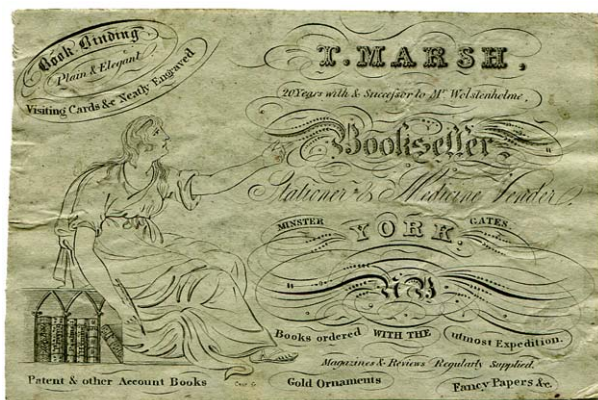 Book-Binding
Plain & Elegant
Visiting Cards &c Neatly Engraved
T. MARSH,
20 Years with & Successor to Mr. Wolstenholme,
Bookseller,
Stationer & Medicine Vender,
MINSTER YORK, GATES.
NB
Books ordered WITH THE utmost Expedition.
Magazines & Reviews Regularly Supplied.
Patent & other Account Books
Gold Ornaments
Fancy Papers &c.